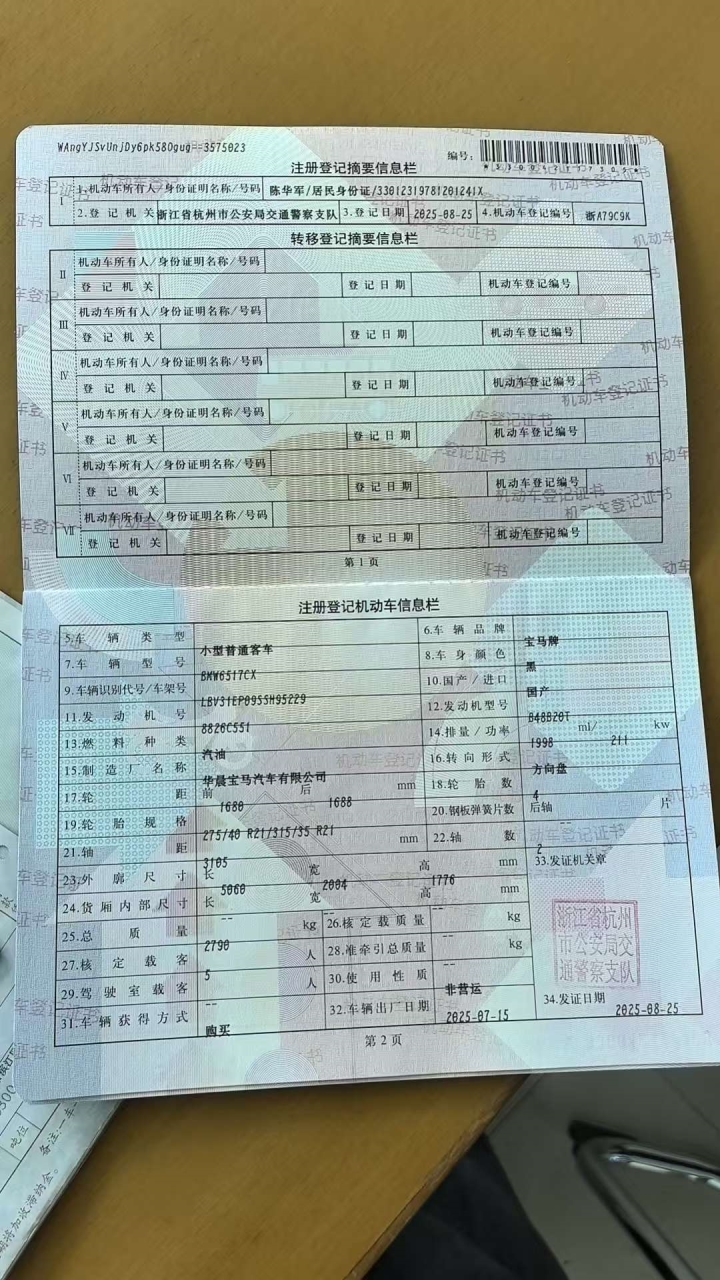 WAngYJSvUnjDy6pk580gug==3575023
编号:
注册登记摘要信息栏
I 1.机动车所有人/身份证明名称/号码 陈华军/居民身份证/33012319781201241X
2.登记机关 浙江省杭州市公安局交通警察支队 3.登记日期 2025-08-25 4.机动车登记编号 浙A79C9K
转移登记摘要信息栏
II 机动车所有人/身份证明名称/号码
登记机关 登记日期 机动车登记编号
III 机动车所有人/身份证明名称/号码
登记机关 登记日期 机动车登记编号
IV 机动车所有人/身份证明名称/号码
登记机关 登记日期 机动车登记编号
V 机动车所有人/身份证明名称/号码
登记机关 登记日期 机动车登记编号
VI 机动车所有人/身份证明名称/号码
登记机关 登记日期 机动车登记编号
VII 机动车所有人/身份证明名称/号码
登记机关 登记日期 机动车登记编号
第1页
注册登记机动车信息栏
5.车辆类型 小型普通客车 6.车辆品牌 宝马牌
7.车辆型号 BMW6517CX 8.车身颜色 黑
9.车辆识别代号/车架号 LBV31EP0955H95229 10.国产/进口 国产
11.发动机号 8826C551 12.发动机型号 B48B20T
13.燃料种类 汽油 14.排量/功率 1998 ml/ 211 kw
15.制造厂名称 华晨宝马汽车有限公司 16.转向形式 方向盘
17.轮距 前 1680 后 1688 mm 18.轮胎数 4
19.轮胎规格 275/40 R21/315/35 R21 20.钢板弹簧片数 后轴 -- 片
21.轴距 3105 mm 22.轴数 2
23.外廓尺寸 长 5060 宽 2004 高 1776 mm 33.发证机关章
24.货厢内部尺寸 长 -- 宽 -- 高 -- mm
25.总质量 2790 kg 26.核定载质量 -- kg
27.核定载客 5 人 28.准牵引总质量 -- kg
29.驾驶室载客 -- 人 30.使用性质 非营运
31.车辆获得方式 购买 32.车辆出厂日期 2025-07-15
浙江省杭州
市公安局交
通警察支队
34.发证日期 2025-08-25
第2页
吨位
备注:一车
期将加收滞纳金。